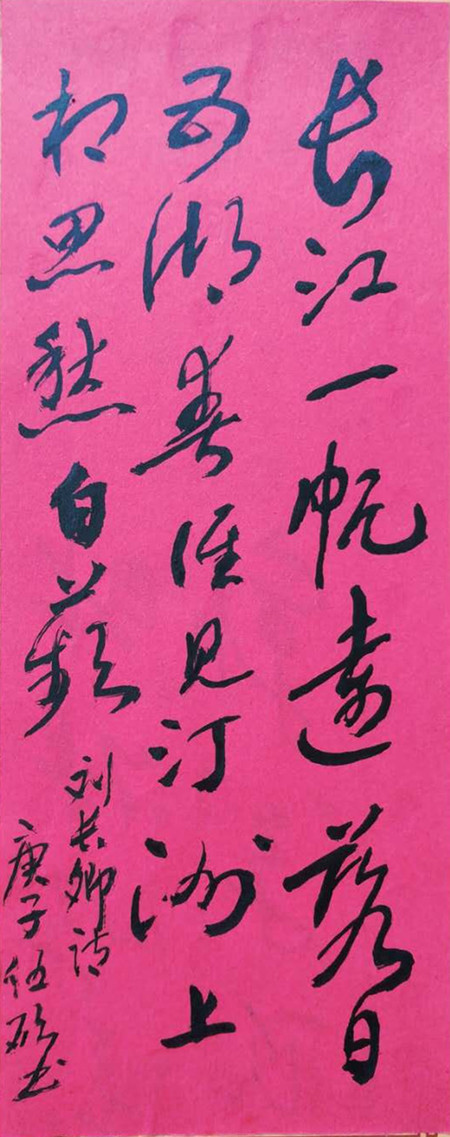 长江一帆远落日
五湖春谁见汀洲上
相思愁白蘋
刘长卿诗
庚子伍书